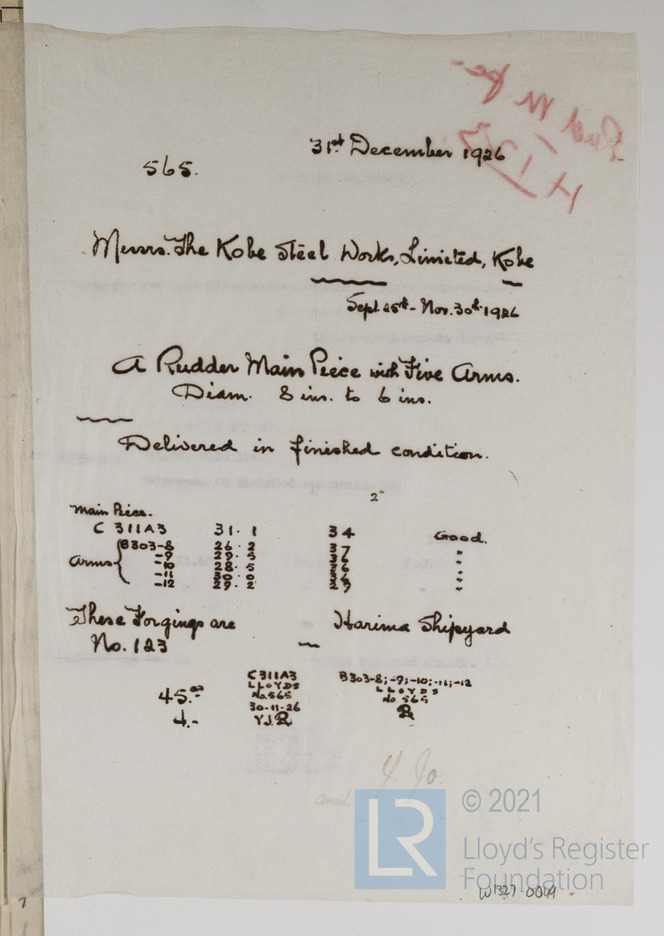 31st December 1926
565.
Messrs. The Kobe Steel Works, Limited, Kobe
Sept. 25th - Nov. 30th 1926
A Rudder Main Piece with Five Arms.
Diam. 8 ins. to 6 ins.
Delivered in finished condition.
2"
Main Piece.
C 311A3 31.1 34 Good.
Arms { B303-8 26.2 37 "
-9 29.5 "
-10 28.5 "
-11 30.0 "
-12 29.2 "
These Forgings are Harima Shipyard
No. 123
45.00
4.-
C311A3
LLOYDS
No 565
30-11-26
Y.J.R.
B303-8; -9; -10; -11; -12
LLOYDS
No 565
R
Y. Jo.
© 2021
LR
Lloyd's Register
Foundation
W327-0049
7